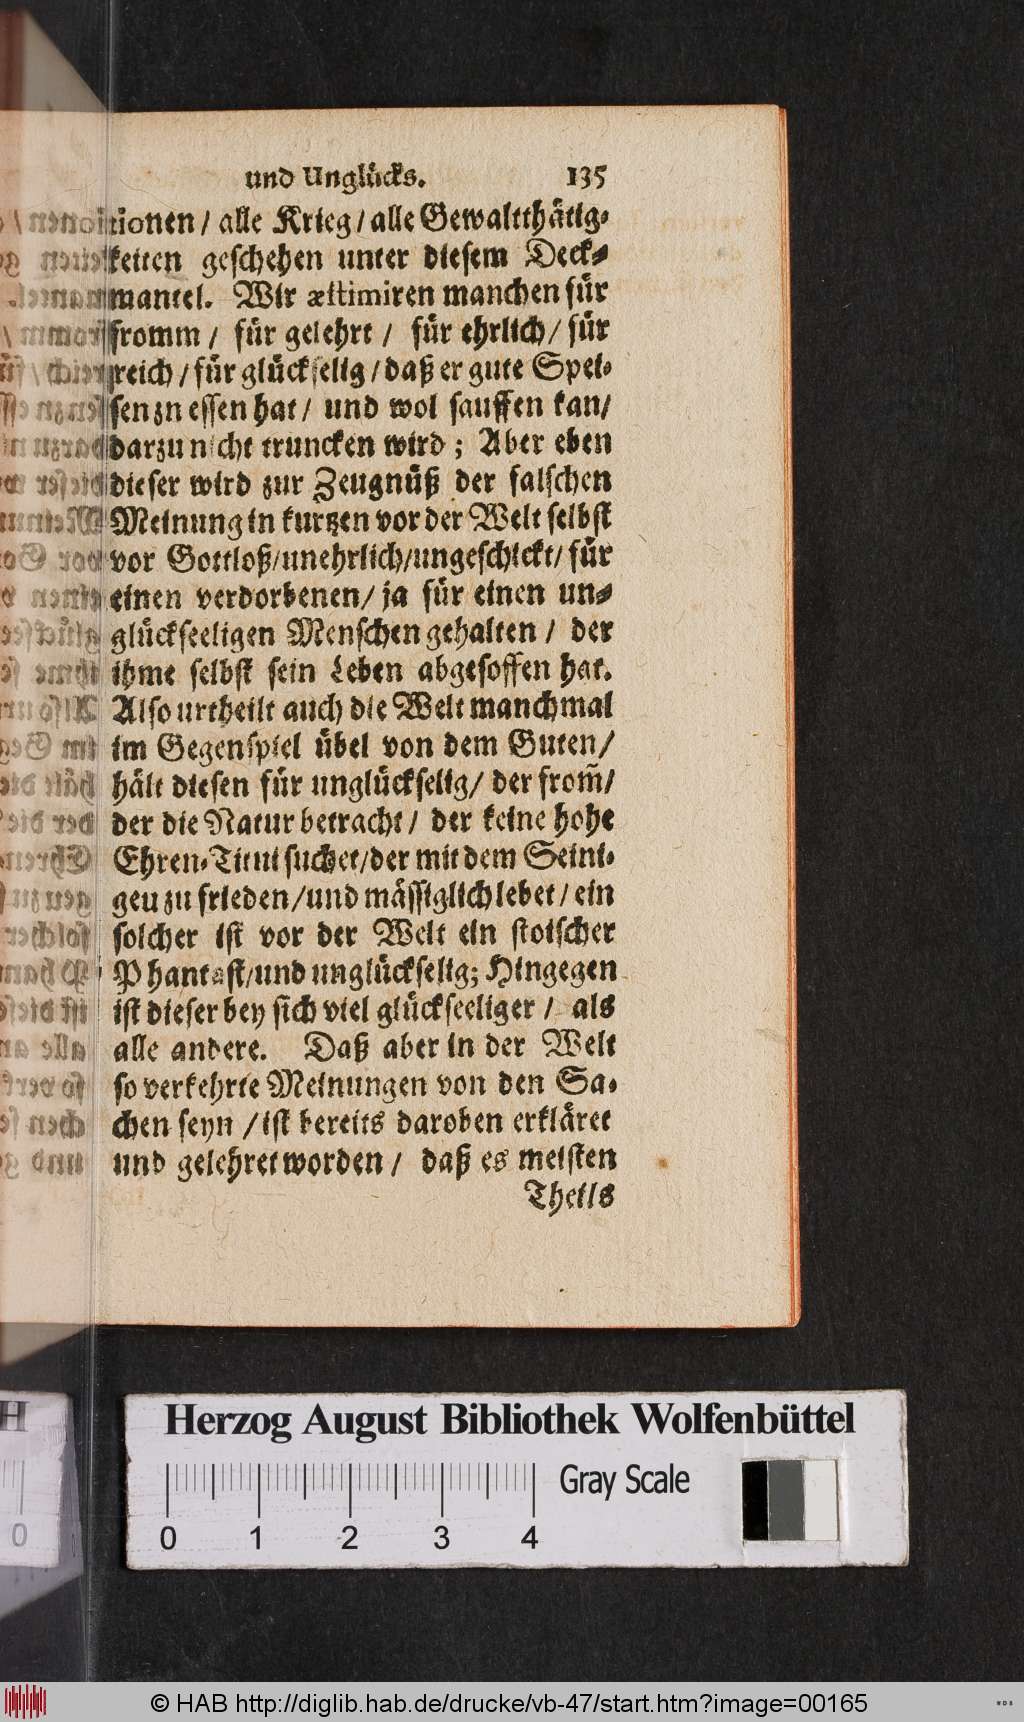 und Unglücks. 135
tionen / alle Krieg / alle Gewaltthätig-
keiten geschehen unter diesem Deck-
mantel. Wir æstimiren manchen für
fromm / für gelehrt / für ehrlich / für
reich / für glückselig / daß er gute Spei-
sen zu essen hat / und wol sauffen kan /
darzu nicht truncken wird ; Aber eben
dieser wird zur Zeugnüß der falschen
Meinung in kurtzen vor der Welt selbst
vor Gottloß / unehrlich / ungeschickt / für
einen verdorbenen / ja für einen un-
glückseeligen Menschen gehalten / der
ihme selbst sein Leben abgesoffen hat.
Also urtheilt auch die Welt manchmal
im Gegenspiel übel von dem Guten /
hält diesen für unglückselig / der from̃ /
der die Natur betracht / der keine hohe
Ehren-Titul suchet / der mit dem Seini-
gen zu frieden / und mässiglich lebet / ein
solcher ist vor der Welt ein stoischer
Phantast / und unglückselig; Hingegen
ist dieser bey sich viel glückseeliger / als
alle andere. Daß aber in der Welt
so verkehrte Meinungen von den Sa-
chen seyn / ist bereits daroben erkläret
und gelehret worden / daß es meisten
Theils
Herzog August Bibliothek Wolfenbüttel
Gray Scale
0 1 2 3 4
H
0
© HAB http://diglib.hab.de/drucke/vb-47/start.htm?image=00165
WDB